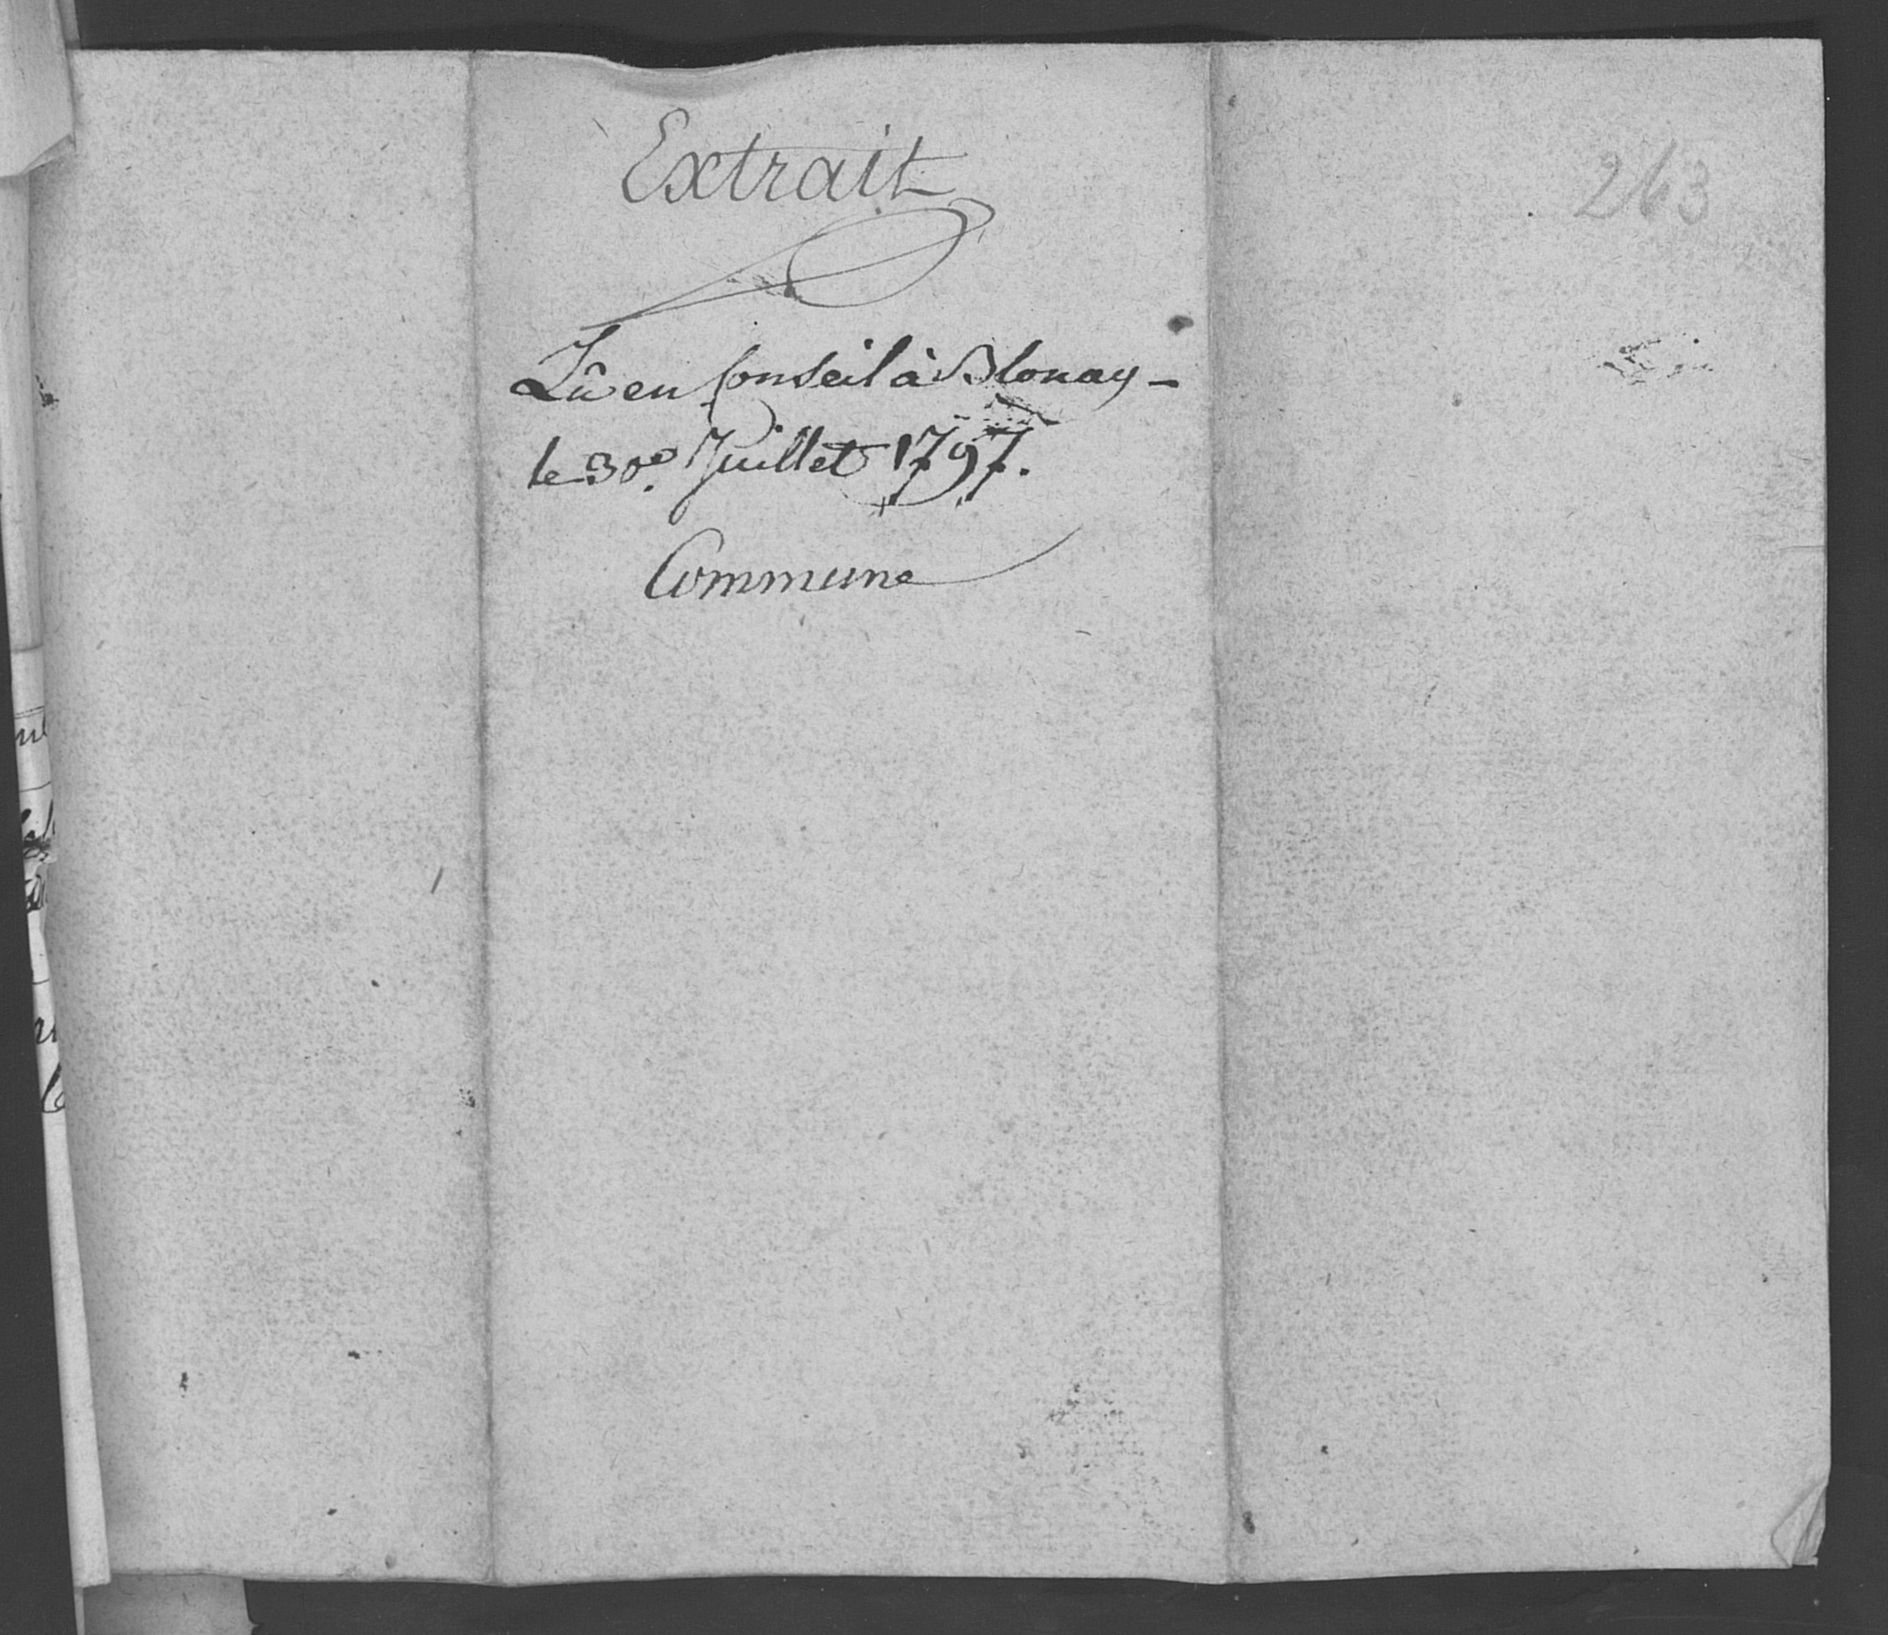 Extrait
263
Lû en Conseil à Blonay -
le 30e. Juillet 1797.
Commune